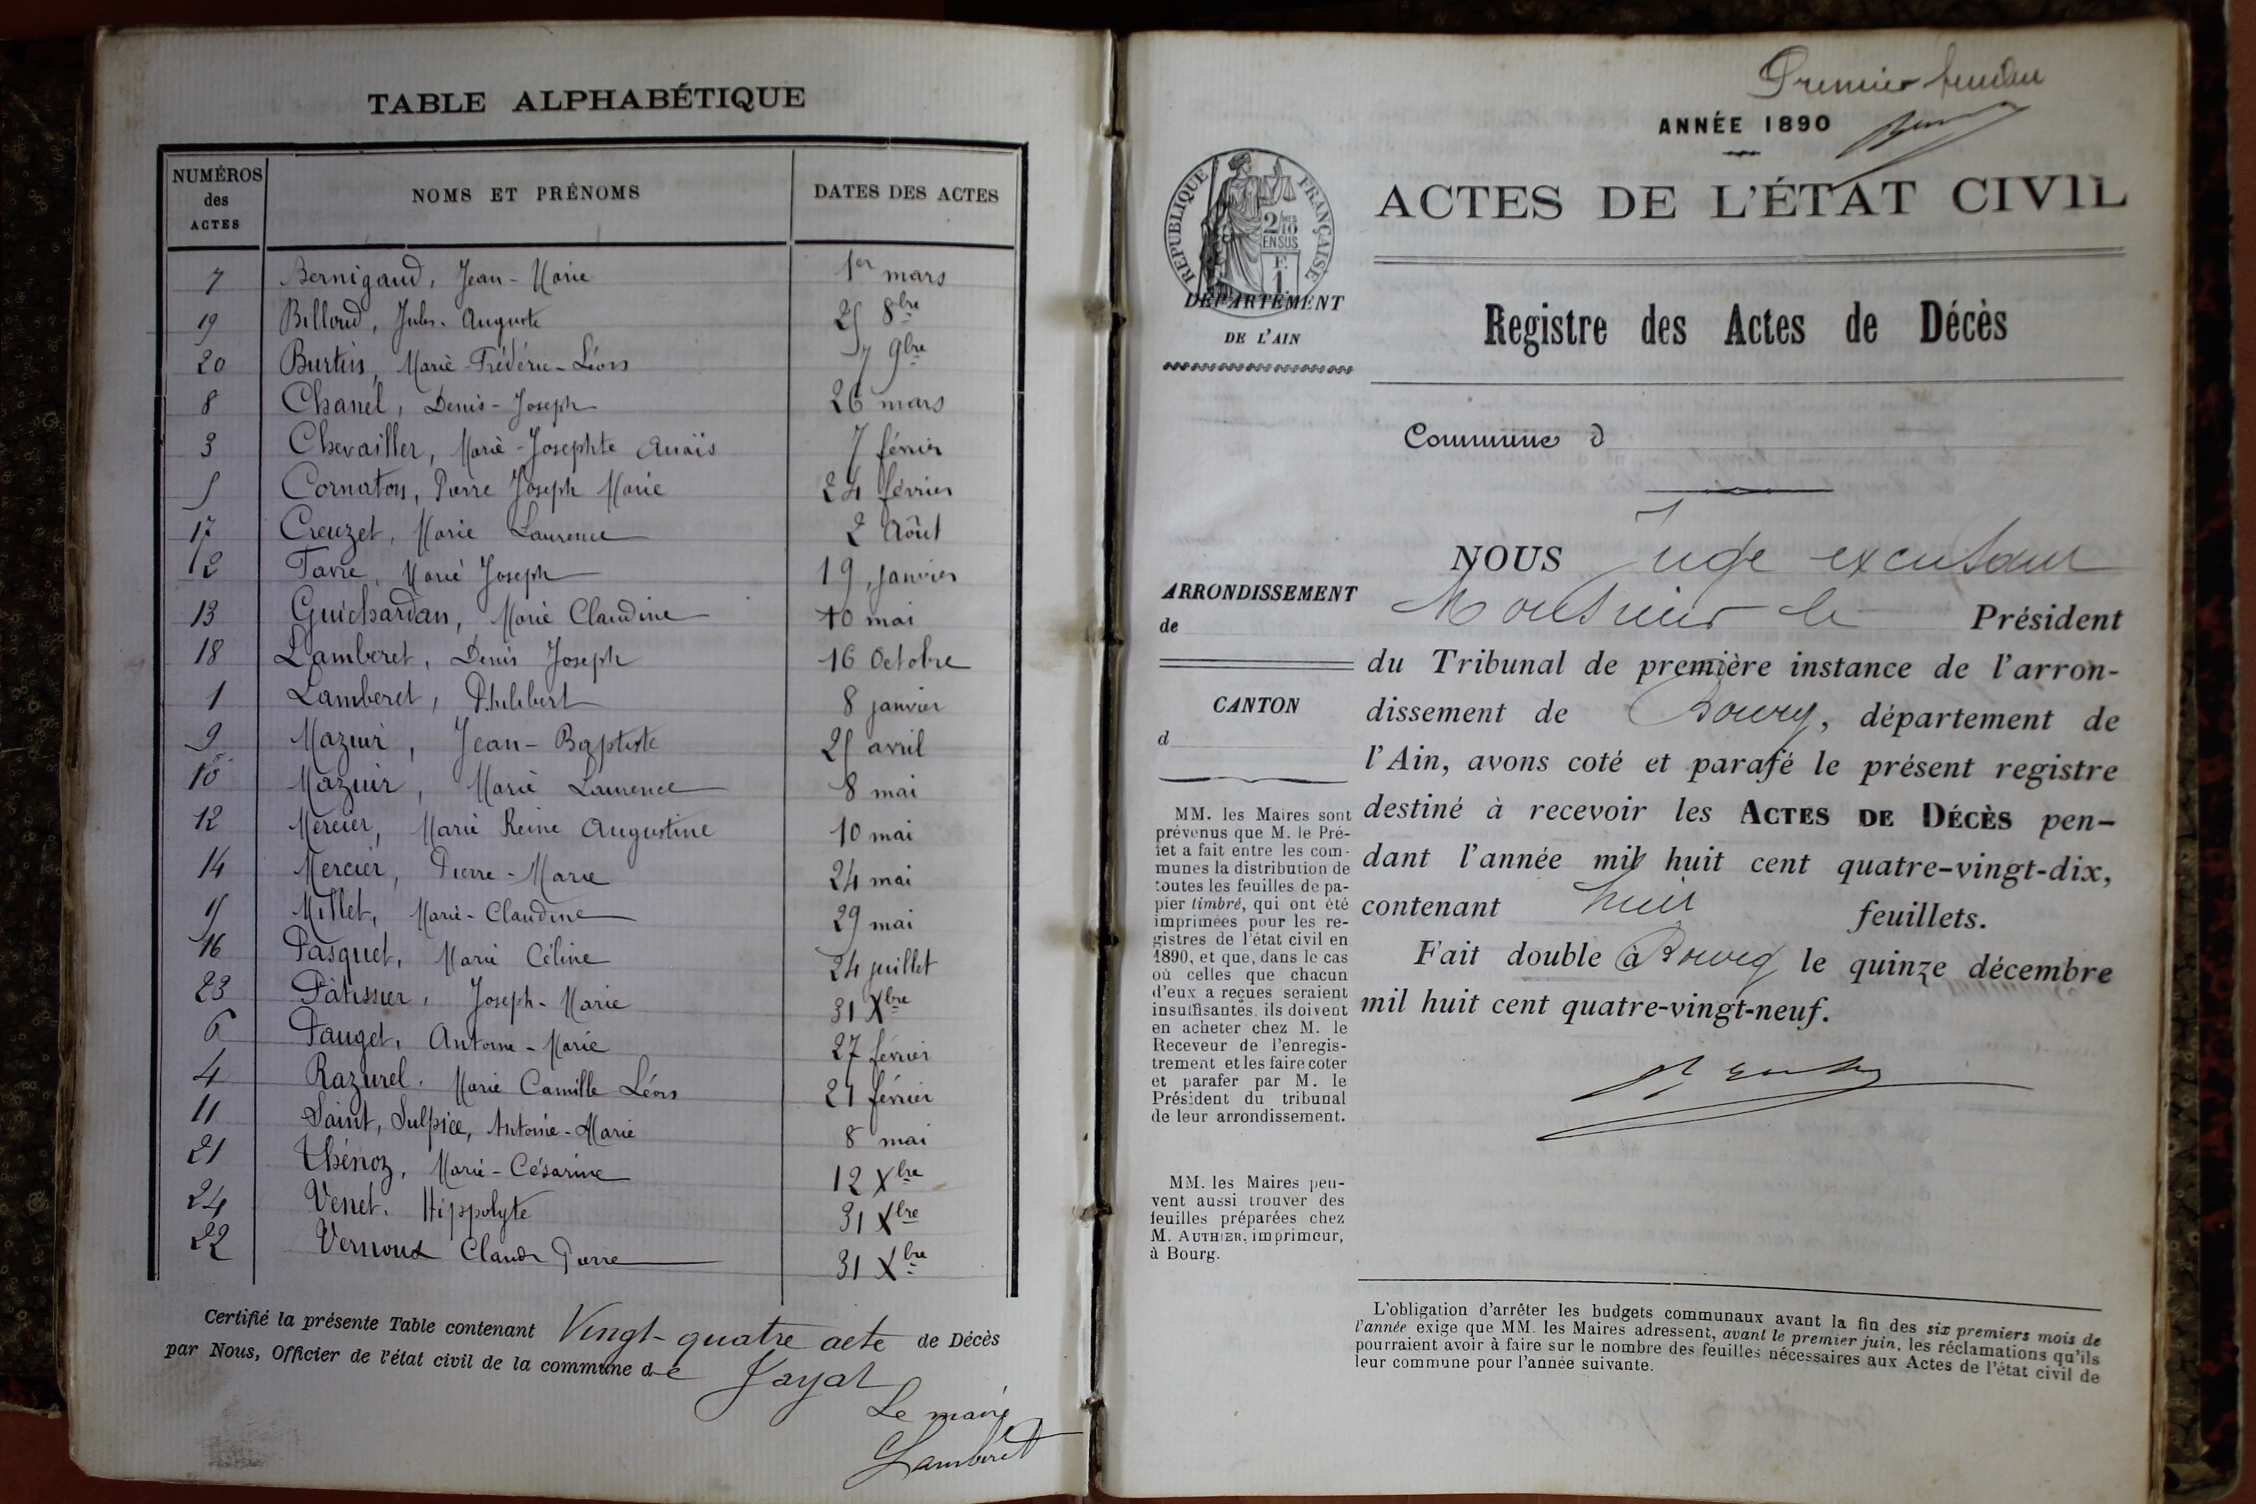 TABLE ALPHABÉTIQUE
NUMÉROS des ACTES NOMS ET PRÉNOMS DATES DES ACTES
7 Bernigaud, Jean-Marie 1er mars
19 Billoud, Jules-Auguste 25 8bre
20 Burtin, Marie Frédéric-Léon 7 9bre
8 Chanel, Denis-Joseph 26 mars
3 Chevailler, Marie-Josephte Anaïs 7 février
5 Cornaton, Pierre Joseph Marie 24 février
17 Creuzet, Marie Laurence 2 Août
2 Favre, Marie Joseph 19 janvier
13 Guichardan, Marie Claudine 10 mai
18 Lamberet, Denis Joseph 16 Octobre
1 Lamberet, Philibert 8 janvier
9 Mazuir, Jean-Baptiste 25 avril
10 Mazuir, Marie Laurence 8 mai
12 Mercier, Marie Reine Augustine 10 mai
14 Mercier, Pierre-Marie 24 mai
15 Millet, Marie-Claudine 29 mai
16 Pasquet, Marie Céline 24 juillet
23 Pâtissier, Joseph-Marie 31 Xbre
6 Pauget, Antoine-Marie 27 février
4 Razurel, Marie Camille Léon 21 février
11 Saint, Sulpice, Antoine-Marie 8 mai
21 Thénoz, Marie-Césarine 12 Xbre
24 Venet, Hippolyte 31 Xbre
22 Vernoux Claude Pierre 31 Xbre
Certifié la présente Table contenant Vingt-quatre acte de Décès
par Nous, Officier de l'état civil de la commune de Jayat
Le maire
Lamberet
Premier
ANNÉE 1890
ACTES DE L'ÉTAT CIVIL
RÉPUBLIQUE FRANÇAISE
2/10 EN SUS
F. 1
DÉPARTEMENT
DE L'AIN
Registre des Actes de Décès
Commune d
ARRONDISSEMENT
de
CANTON
d
NOUS Juge
Monsieur le Président
du Tribunal de première instance de l'arron-
dissement de Bourg, département de
l'Ain, avons coté et parafé le présent registre
destiné à recevoir les ACTES DE DÉCÈS pen-
dant l'année mil huit cent quatre-vingt-dix,
contenant huit feuillets.
Fait double à Bourg le quinze décembre
mil huit cent quatre-vingt-neuf.
MM. les Maires sont
prévenus que M. le Pré-
fet a fait entre les com-
munes la distribution de
toutes les feuilles de pa-
pier timbré, qui ont été
imprimées pour les re-
gistres de l'état civil en
1890, et que, dans le cas
où celles que chacun
d'eux a reçues seraient
insuffisantes, ils doivent
en acheter chez M. le
Receveur de l'enregis-
trement et les faire coter
et parafer par M. le
Président du tribunal
de leur arrondissement.
MM. les Maires peu-
vent aussi trouver des
feuilles préparées chez
M. AUTHIER, imprimeur,
à Bourg.
L'obligation d'arrêter les budgets communaux avant la fin des six premiers mois de
l'année exige que MM. les Maires adressent, avant le premier juin, les réclamations qu'ils
pourraient avoir à faire sur le nombre des feuilles nécessaires aux Actes de l'état civil de
leur commune pour l'année suivante.